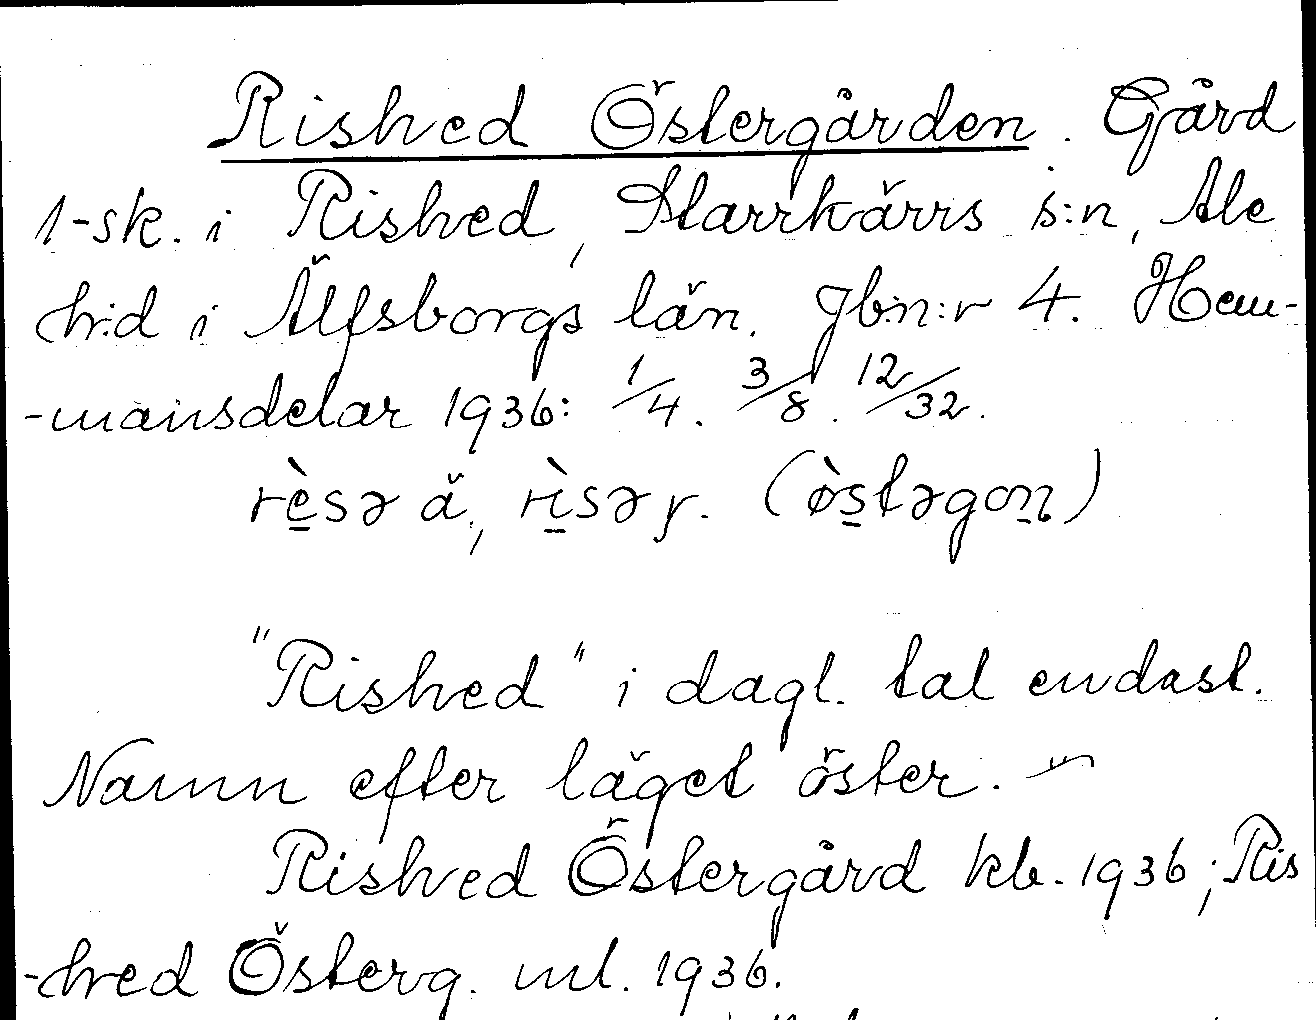 Rished Östergården. Gård
1-sk. i Rished, Starrkärrs s:n, Ale
h:d i Älfsborgs län. Jb:n:r 4. Hem-
-mansdelar 1936: 1/4. 3/8. 12/32.
rèsə ä, rìsər. (òstəgon)
"Rished" i dagl. tal endast.
Namn efter läget öster. –
Rished Östergård kb. 1936; Ris
-hed Österg. ml. 1936.